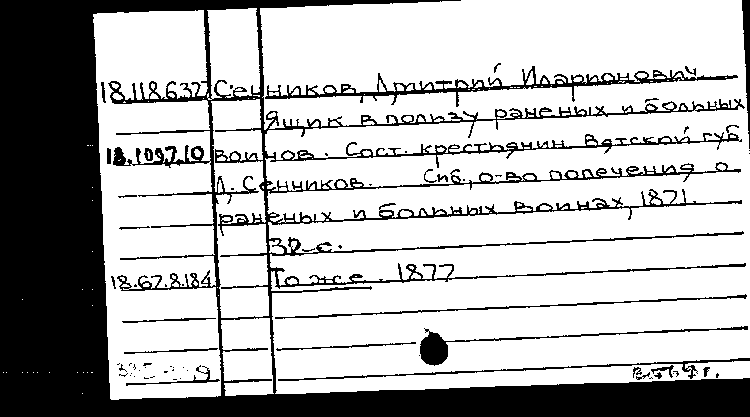 18.118.6.327 Сенников, Дмитрий Иларионович
Ящик в пользу раненых и больных
18.109.7.10 воинов. Сост. крестьянин Вятской губ.
Д. Сенников. Спб., о-во попечения о
раненых и больных воинах, 1871.
32 с.
18.67.8.184 То же. 1877